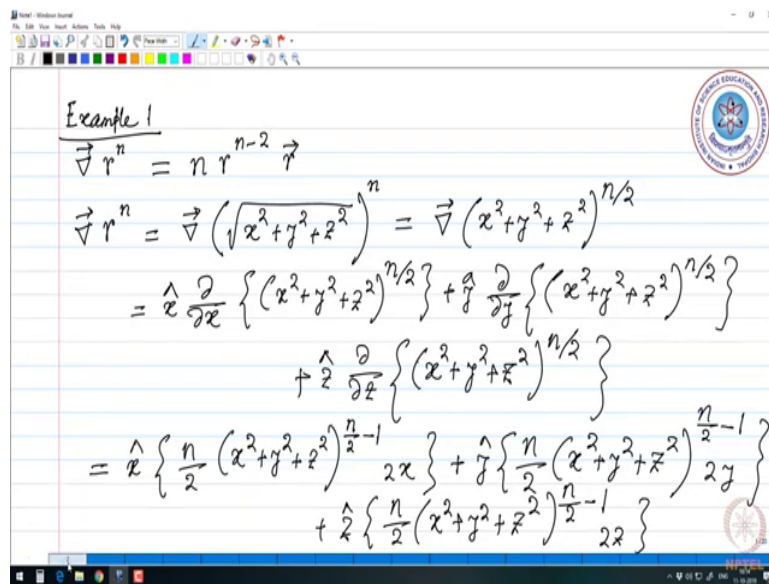 Note1 - Windows Journal
File Edit View Insert Actions Tools Help
Page Width
B I
INDIAN INSTITUTE OF SCIENCE EDUCATION AND RESEARCH BHOPAL
Example 1
∇⃗ r^n = n r^{n-2} r⃗
∇⃗ r^n = ∇⃗ (√(x²+y²+z²))^n = ∇⃗ (x²+y²+z²)^{n/2}
= x̂ ∂/∂x {(x²+y²+z²)^{n/2}} + ŷ ∂/∂y {(x²+y²+z²)^{n/2}}
+ ẑ ∂/∂z {(x²+y²+z²)^{n/2}}
= x̂ {n/2 (x²+y²+z²)^{n/2 -1} 2x} + ŷ {n/2 (x²+y²+z²)^{n/2 -1} 2y}
+ ẑ {n/2 (x²+y²+z²)^{n/2 -1} 2z}
NPTEL
ENG